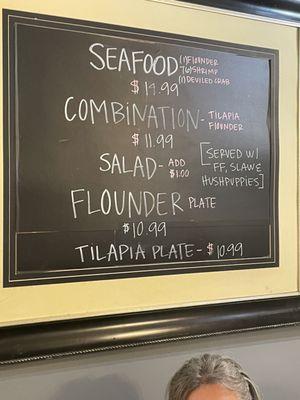 SEAFOOD (1) FLOUNDER
(6) SHRIMP
(1) DEVILED CRAB
$14.99
COMBINATION - TILAPIA
FLOUNDER
$11.99
SALAD - ADD
$1.00
[SERVED W/
FF, SLAW &
HUSHPUPPIES]
FLOUNDER PLATE
$10.99
TILAPIA PLATE - $10.99